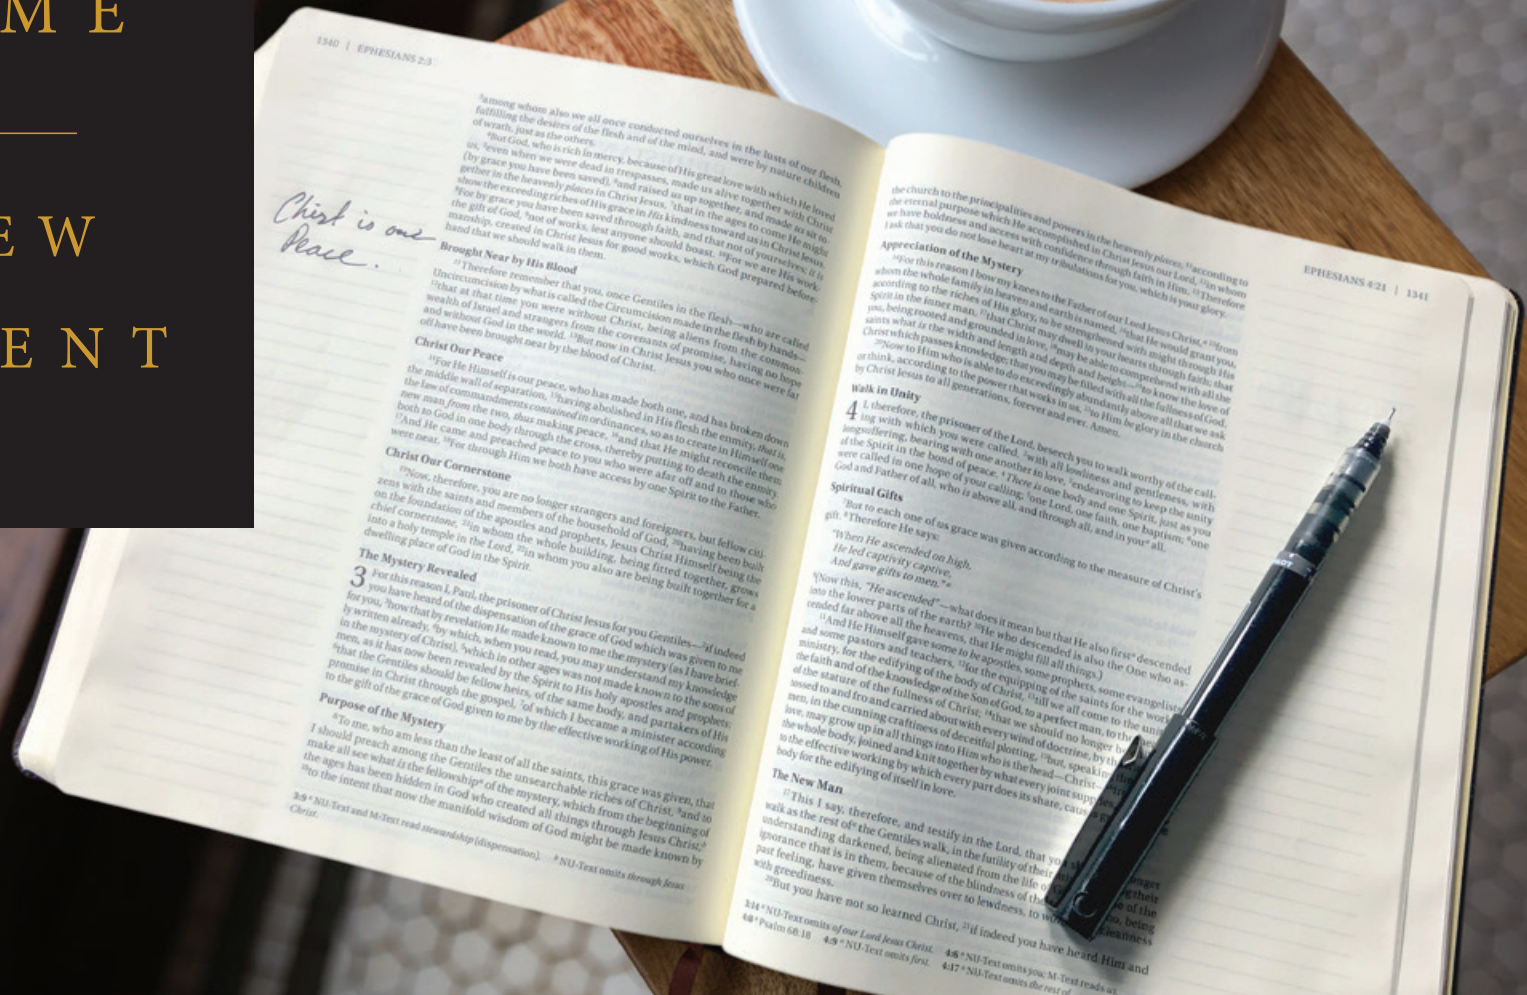 M E
E W
E N T
1340 | EPHESIANS 2:3
Christ is our
Peace.
³among whom also we all once conducted ourselves in the lusts of our flesh,
fulfilling the desires of the flesh and of the mind, and were by nature children
of wrath, just as the others.
⁴But God, who is rich in mercy, because of His great love with which He loved
us, ⁵even when we were dead in trespasses, made us alive together with Christ
(by grace you have been saved), ⁶and raised us up together, and made us sit to-
gether in the heavenly places in Christ Jesus, ⁷that in the ages to come He might
show the exceeding riches of His grace in His kindness toward us in Christ Jesus.
⁸For by grace you have been saved through faith, and that not of yourselves; it is
the gift of God, ⁹not of works, lest anyone should boast. ¹⁰For we are His work-
manship, created in Christ Jesus for good works, which God prepared before-
hand that we should walk in them.
Brought Near by His Blood
¹¹Therefore remember that you, once Gentiles in the flesh—who are called
Uncircumcision by what is called the Circumcision made in the flesh by hands—
¹²that at that time you were without Christ, being aliens from the common-
wealth of Israel and strangers from the covenants of promise, having no hope
and without God in the world. ¹³But now in Christ Jesus you who once were far
off have been brought near by the blood of Christ.
Christ Our Peace
¹⁴For He Himself is our peace, who has made both one, and has broken down
the middle wall of separation, ¹⁵having abolished in His flesh the enmity, that is,
the law of commandments contained in ordinances, so as to create in Himself one
new man from the two, thus making peace, ¹⁶and that He might reconcile them
both to God in one body through the cross, thereby putting to death the enmity.
¹⁷And He came and preached peace to you who were afar off and to those who
were near. ¹⁸For through Him we both have access by one Spirit to the Father.
Christ Our Cornerstone
¹⁹Now, therefore, you are no longer strangers and foreigners, but fellow citi-
zens with the saints and members of the household of God, ²⁰having been built
on the foundation of the apostles and prophets, Jesus Christ Himself being the
chief cornerstone, ²¹in whom the whole building, being fitted together, grows
into a holy temple in the Lord, ²²in whom you also are being built together for a
dwelling place of God in the Spirit.
The Mystery Revealed
3 For this reason I, Paul, the prisoner of Christ Jesus for you Gentiles—²if indeed
you have heard of the dispensation of the grace of God which was given to me
for you, ³how that by revelation He made known to me the mystery (as I have brief-
ly written already, ⁴by which, when you read, you may understand my knowledge
in the mystery of Christ), ⁵which in other ages was not made known to the sons of
men, as it has now been revealed by the Spirit to His holy apostles and prophets:
⁶that the Gentiles should be fellow heirs, of the same body, and partakers of His
promise in Christ through the gospel, ⁷of which I became a minister according
to the gift of the grace of God given to me by the effective working of His power.
Purpose of the Mystery
⁸To me, who am less than the least of all the saints, this grace was given, that
I should preach among the Gentiles the unsearchable riches of Christ, ⁹and to
make all see what is the fellowshipᵃ of the mystery, which from the beginning of
the ages has been hidden in God who created all things through Jesus Christ;ᵇ
¹⁰to the intent that now the manifold wisdom of God might be made known by
3:9 ᵃ NU-Text and M-Text read stewardship (dispensation). ᵇ NU-Text omits through Jesus
Christ.
EPHESIANS 4:21 | 1341
the church to the principalities and powers in the heavenly places, ¹¹according to
the eternal purpose which He accomplished in Christ Jesus our Lord, ¹²in whom
we have boldness and access with confidence through faith in Him. ¹³Therefore
I ask that you do not lose heart at my tribulations for you, which is your glory.
Appreciation of the Mystery
¹⁴For this reason I bow my knees to the Father of our Lord Jesus Christ,ᵃ ¹⁵from
whom the whole family in heaven and earth is named, ¹⁶that He would grant you,
according to the riches of His glory, to be strengthened with might through His
Spirit in the inner man, ¹⁷that Christ may dwell in your hearts through faith; that
you, being rooted and grounded in love, ¹⁸may be able to comprehend with all the
saints what is the width and length and depth and height—¹⁹to know the love of
Christ which passes knowledge; that you may be filled with all the fullness of God.
²⁰Now to Him who is able to do exceedingly abundantly above all that we ask
or think, according to the power that works in us, ²¹to Him be glory in the church
by Christ Jesus to all generations, forever and ever. Amen.
Walk in Unity
4 I, therefore, the prisoner of the Lord, beseech you to walk worthy of the call-
ing with which you were called, ²with all lowliness and gentleness, with
longsuffering, bearing with one another in love, ³endeavoring to keep the unity
of the Spirit in the bond of peace. ⁴There is one body and one Spirit, just as you
were called in one hope of your calling; ⁵one Lord, one faith, one baptism; ⁶one
God and Father of all, who is above all, and through all, and in youᵃ all.
Spiritual Gifts
⁷But to each one of us grace was given according to the measure of Christ's
gift. ⁸Therefore He says:
"When He ascended on high,
He led captivity captive,
And gave gifts to men."ᵃ
⁹(Now this, "He ascended"—what does it mean but that He also firstᵃ descended
into the lower parts of the earth? ¹⁰He who descended is also the One who as-
cended far above all the heavens, that He might fill all things.)
¹¹And He Himself gave some to be apostles, some prophets, some evangelists,
and some pastors and teachers, ¹²for the equipping of the saints for the work
ministry, for the edifying of the body of Christ, ¹³till we all come to the unit
the faith and of the knowledge of the Son of God, to a perfect man, to the
of the stature of the fullness of Christ; ¹⁴that we should no longer be
tossed to and fro and carried about with every wind of doctrine, by th
men, in the cunning craftiness of deceitful plotting, ¹⁵but, speaking
love, may grow up in all things into Him who is the head—Christ—
the whole body, joined and knit together by what every joint supp
to the effective working by which every part does its share, caus
body for the edifying of itself in love.
The New Man
¹⁷This I say, therefore, and testify in the Lord, that you longer
walk as the rest ofᵃ the Gentiles walk, in the futility of their their
understanding darkened, being alienated from the life of of the
ignorance that is in them, because of the blindness of the being
past feeling, have given themselves over to lewdness, to
with greediness.
²⁰But you have not so learned Christ, ²¹if indeed you have heard Him and
3:14 ᵃ NU-Text omits of our Lord Jesus Christ. 4:6 ᵃ NU-Text omits you; M-Text reads us.
4:8 ᵃ Psalm 68:18 4:9 ᵃ NU-Text omits first. 4:17 ᵃ NU-Text omits the rest of